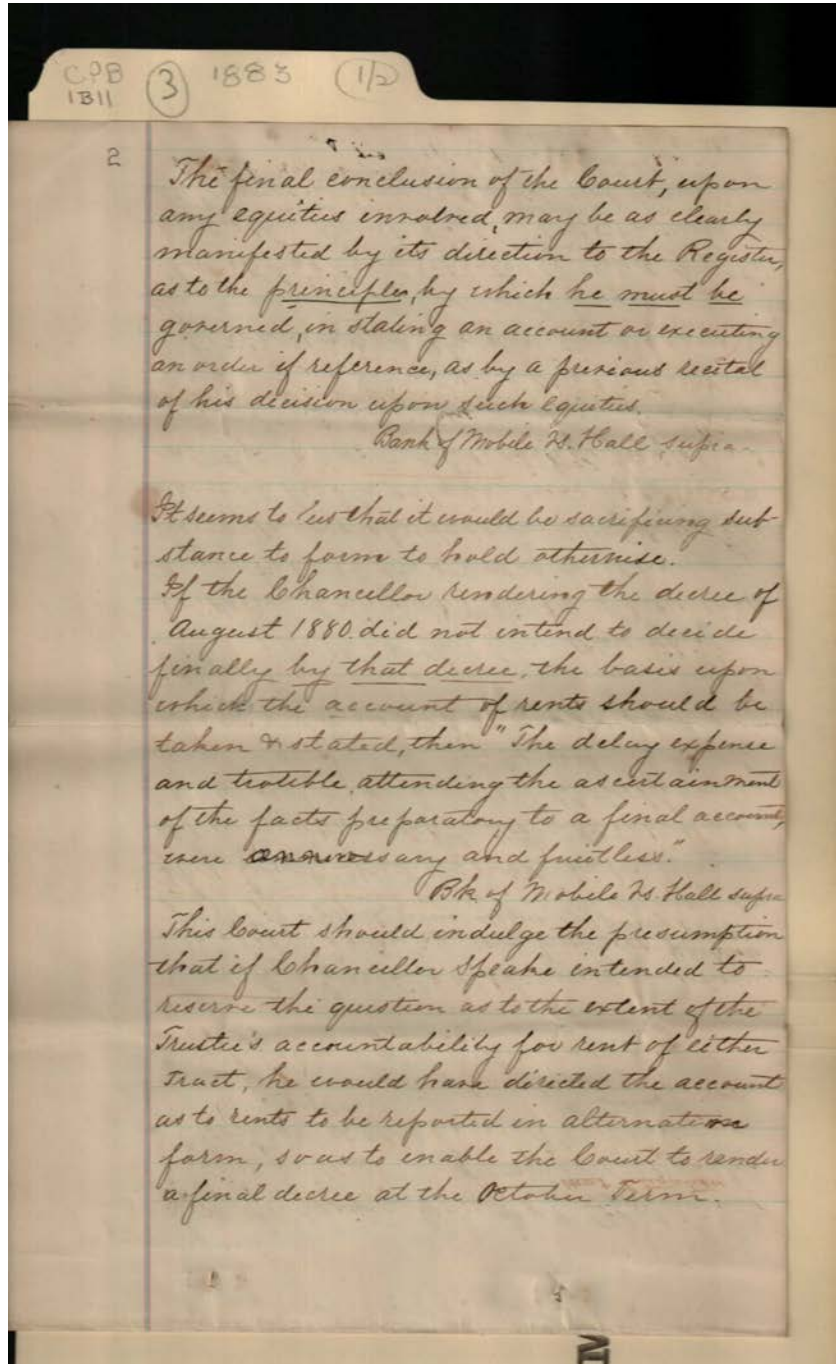 CPB 3 1883 1/2
1B11
2
The final conclusion of the Court, upon
any equities involved, may be as clearly
manifested by its direction to the Register,
as to the principles, by which he must be
governed, in stating an account or executing
an order of reference, as by a previous recital
of his decision upon such equities.
Bank of Mobile vs. Hall supra.
It seems to us that it would be sacrificing sub-
stance to form to hold otherwise.
If the Chancellor rendering the decree of
August 1880. did not intend to decide
finally by that decree, the basis upon
which the account of rents should be
taken & stated, then "The delay expense
and trouble attending the ascertainment
of the facts preparatory to a final account,
were and fruitless."
Bk of Mobile vs. Hall supra
This Court should indulge the presumption
that if Chancellor Speake intended to
reserve the question as to the extent of the
Trustee's accountability for rent of either
Tract, he would have directed the account
as to rents to be reported in alternative
form, so as to enable the Court to render
a final decree at the October Term.